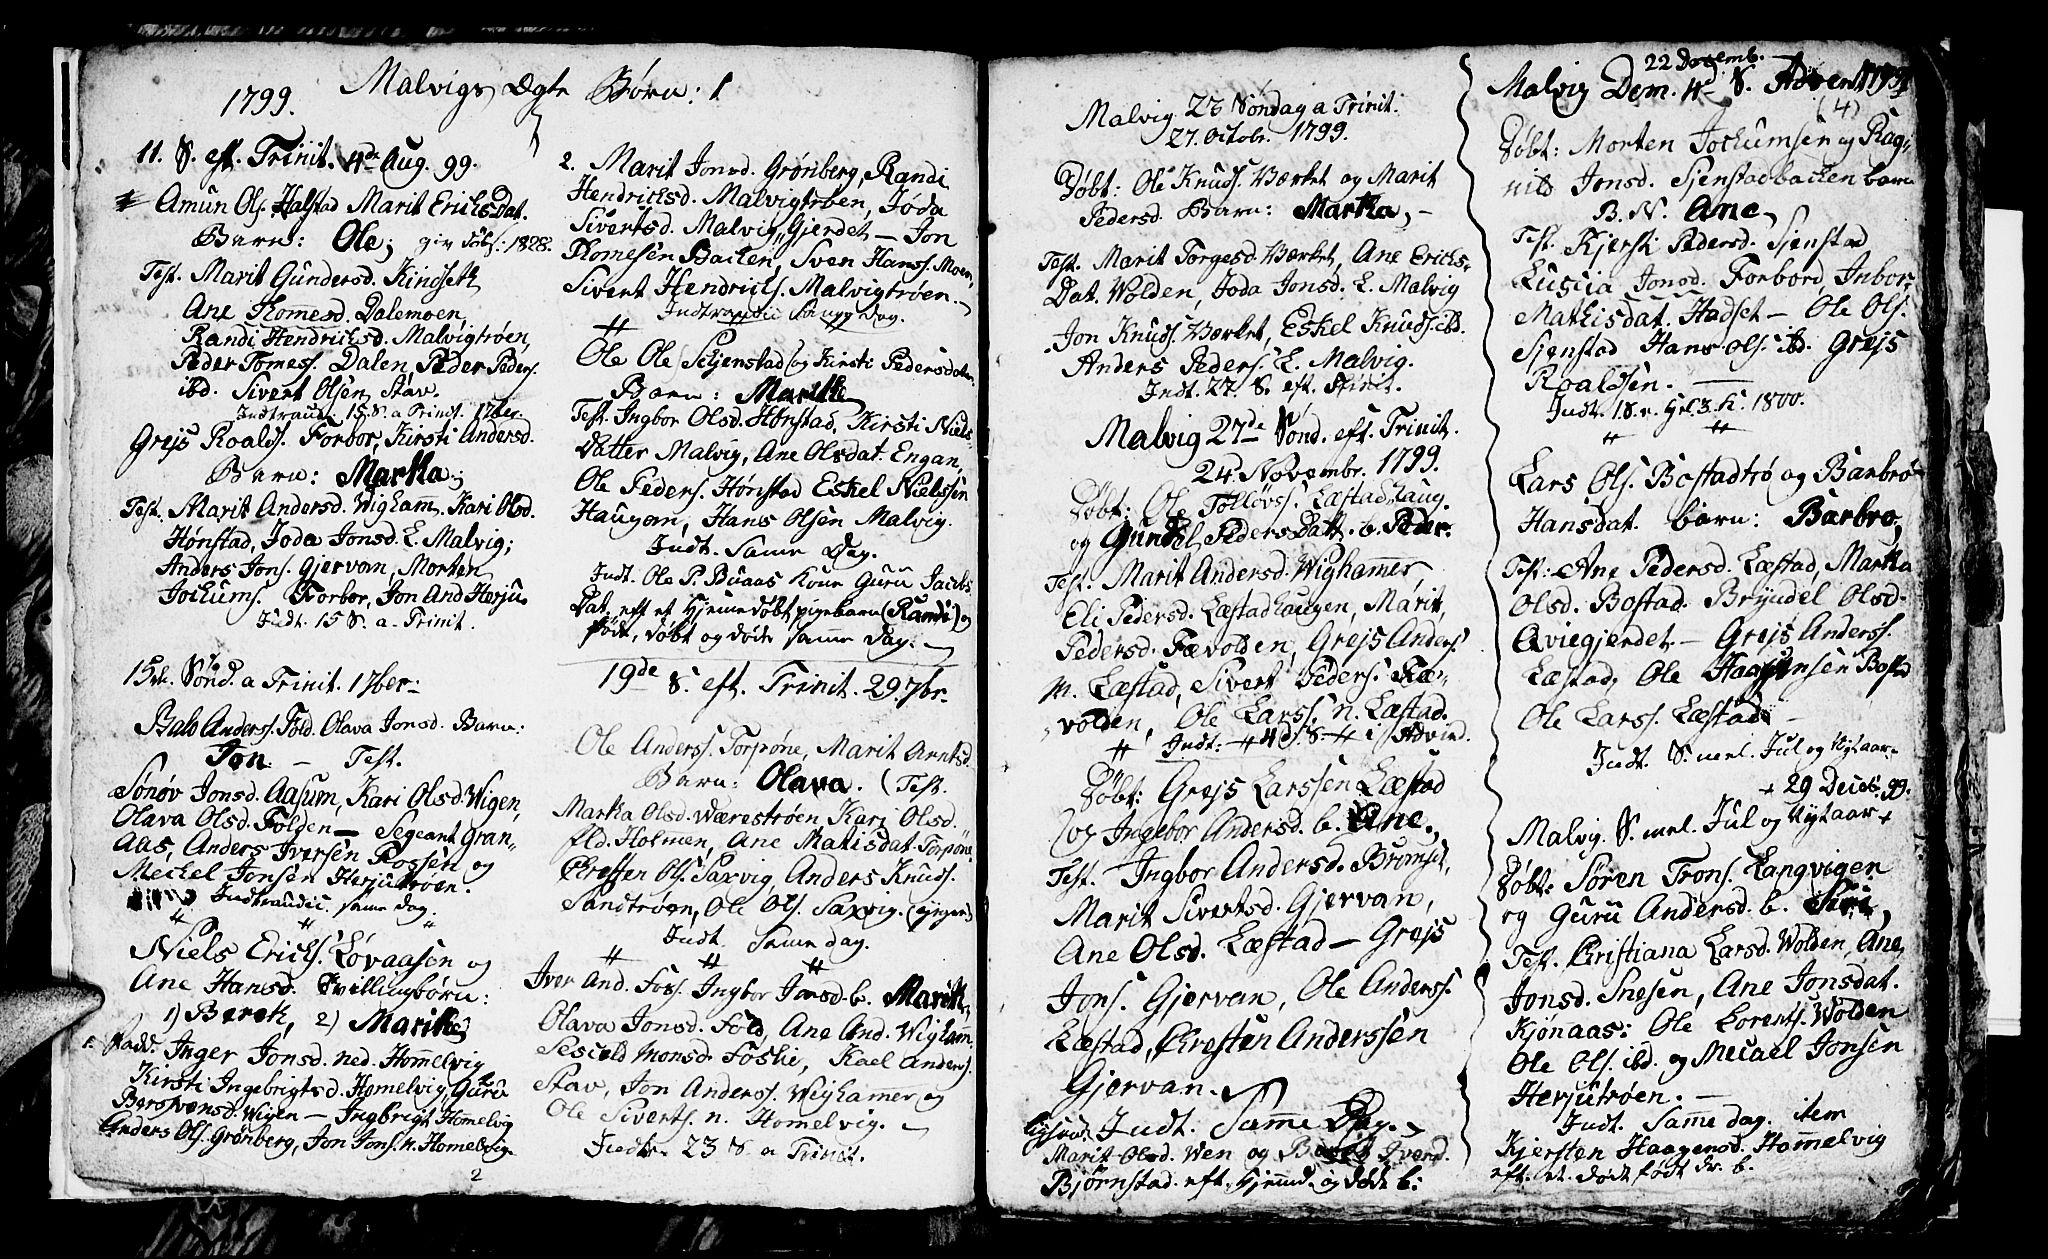 Malvigs Ægte Børn: 1
1799.
11. S. eft. Trinit. 4de Aug. 99.
Amun Ols. Halstad Marit Erichs Dat.
Barn: Ole; giv Døbs: 1828.
Test. Marit Gundersd. Kindsett
Ane Thomesd. Dalemoen,
Randi Hendrichsd. Malvigtrøen,
Peder Tomess. Dalen, Peder Peders.
ibd. Sivert Olsen Stav.
Indtraad: 15 S. a Trinit. 17ber.
Grejs Roalds. Forbor, Kirsti Andersd.
Barn: Marka;
Test. Marit Andersd. Wigham̅. Kari Olsd.
Hønstad, Joda Jonsd. E. Malvig;
Anders Jons. Gjervan, Morten
Jochums. Forbor, Jon And Herju
Indt. 15 S. a. Trinit.
15de. Sønd. a Trinit. 17ber:
Anderss. Fold. Olava Jonsd. Barn:
Jon. – Test.
Sønøv Jonsd. Aasum, Kari Olsd. Wigen,
Olava Olsd. Folden – Segeant Gran-
Aas, Anders Iversen Rossen og
Meckel Jonsen Herjutrøen.
Indtraadic. samme dag.
Niels Erichs. Løvaasen og
Ane Hansd. Tvillingbørn:
1) Berek, 2) Marit
Fadd. Inger Jonsd. ned. Hom̅elvig
Kirsti Ingebrigtsd. Homelvig, Guru
Wigen – Ingbrigt Hom̅elvig
Anders Ols. Grønberg, Jon Jons. n. Homelvig.
2
2. Marit Jonsd. Grønberg, Randi
Hendrichsd. Malvigtrøen, Joda
Sivertsd. Malvig, Gjerdet – Jon
Thomesen Backen, Sven Hanss. Moen,
Sivert Hendrichs. Malvigtrøen.
Indtraadic Samme dag.
Ole Ole Schjenstad og Kirsti Pedersdatter
Barn: Marit
Test. Ingbor Olsd. Hønstad, Kirsti Niels-
Datter Malvig, Ane Olsdat. Engan,
Ole Peders. Hønstad Eskel Nielssen
Haugan, Hans Olsen Malvig.
Indt. Samme Dag.
Indt. Ole P. Buaas Kone Guru Jacobs
Dat. eft et Hjemedøbt pigebarn (Randi) og
født, døbt og døde samme dag.
19de S. eft. Trinit. 29. 7br.
Ole Anderss. Torpøne, Marit Arntsd.
Barn: Olava. (Test.
Marka Olsd. Wærestrøen, Kari Olsd.
Holmen, Ane Matisdat. Torpøne
Chresten Ols. Saxvig, Anders Knuds.
Sandtrøen, Ole Ols. Saxvig. (
Indt. Samme dag.
Iver And. Foss. Ingbor Jonsd. b. Marit,
Olava Jonsd. Fold, Ane And. Wigham̅.
Monsd. Anders.
Stav, Jon Anderss. Wighamer og
Ole Siverts. n. Homelvig.
Indt. 23 S. a Trinit.
Malvig 23 Søndag a Trinit.
27. Octobr. 1799.
Døbt: Ole Knuds. Værket og Marit
Pedersd. Barn: Marka,
Test. Marit Torgesd. Værket, Ane Erichs-
Dat. Wolden, Joda Jonsd. E. Malvig
Jon Knuds. Værket, Eskel Knuds. ibd.
Anders Peders. E. Malvig.
Indt. 27. S. eft. Trinit.
Malvig 27de Sønd. eft. Trinit.
24. Novembr. 1799.
Døbt: Ole Tolløvs. Læstadhaug.
og Gundel Peders Datt. b. Peder.
Test. Marit Andersd. Wighammer,
Eli Pedersd. Læstadhaugen, Marit,
Pedersd. Fævolden, Grejs Anders.
m. Læstad, Sivert Peders. Fæ-
volden, Ole Larss. n. Læstad.
Indt: 4d. S. i Advind.
Døbt: Grejs Larssen Læstad
og Ingebor Andersd. b. Ane.
Test. Ingbor Andersd. Bromset,
Marit Sivertsd. Gjervan,
Ane Olsd. Læstad – Grejs
Jons. Gjervan, Ole Anderss.
Læstad, Chresten Anderssen
Gjervan.
Indt. Sam̅e Dag.
Marit Olsd. Wen og Iversd.
Bjørnstad. eft. Hjemmd. og døde b:
22 Decemb.
Malvig Dom. 4de S. Advent 1799
(4)
Døbt: Morten Jochumsen og Rag-
nild Jonsd. Sjenstadbacken barn
B. N. Ane,
Test. Kjersti Pedersd. Sjenstad
Lusiia Jonsd. Forbord, Inbor
Mathisdat. Hadset – Ole Ols.
Sjenstad Hans Ols. ibd. Grejs
Roaldsen. –
Indt. 1 S. e. Hel. 3. K. 1800.
Lars Ols. Bostadtrø og Barbro
Hansdat. barn: Barbro,
Test: Ane Pedersd. Læstad, Marka
Olsd. Bostad. Bryndel Olsd.
Qviegjerdet – Grejs Anderss.
Læstad, Ole Haagensen Bostad
Ole Larss. Læstad. –
Indt. S. mel. Jul og Nytaar.
29 Decbr. 99.
Malvig. S. mel. Jul og Nytaar
Døbt: Søren Trons. Langvigen
og Guru Andersd. b. Siri,
Test. Christiana Larsd. Wolden, Ane
Jonsd. Snesen, Ane Jonsdat.
Kjønaas: Ole Lorents. Wolden
Ole Ols. ibd. og Mecael Jonsen
Herjutrøen. –
Indt. Sam̅e dag. item
Kjersten Haagensd. Homelvig
eft. et. dødfødt dr. b.